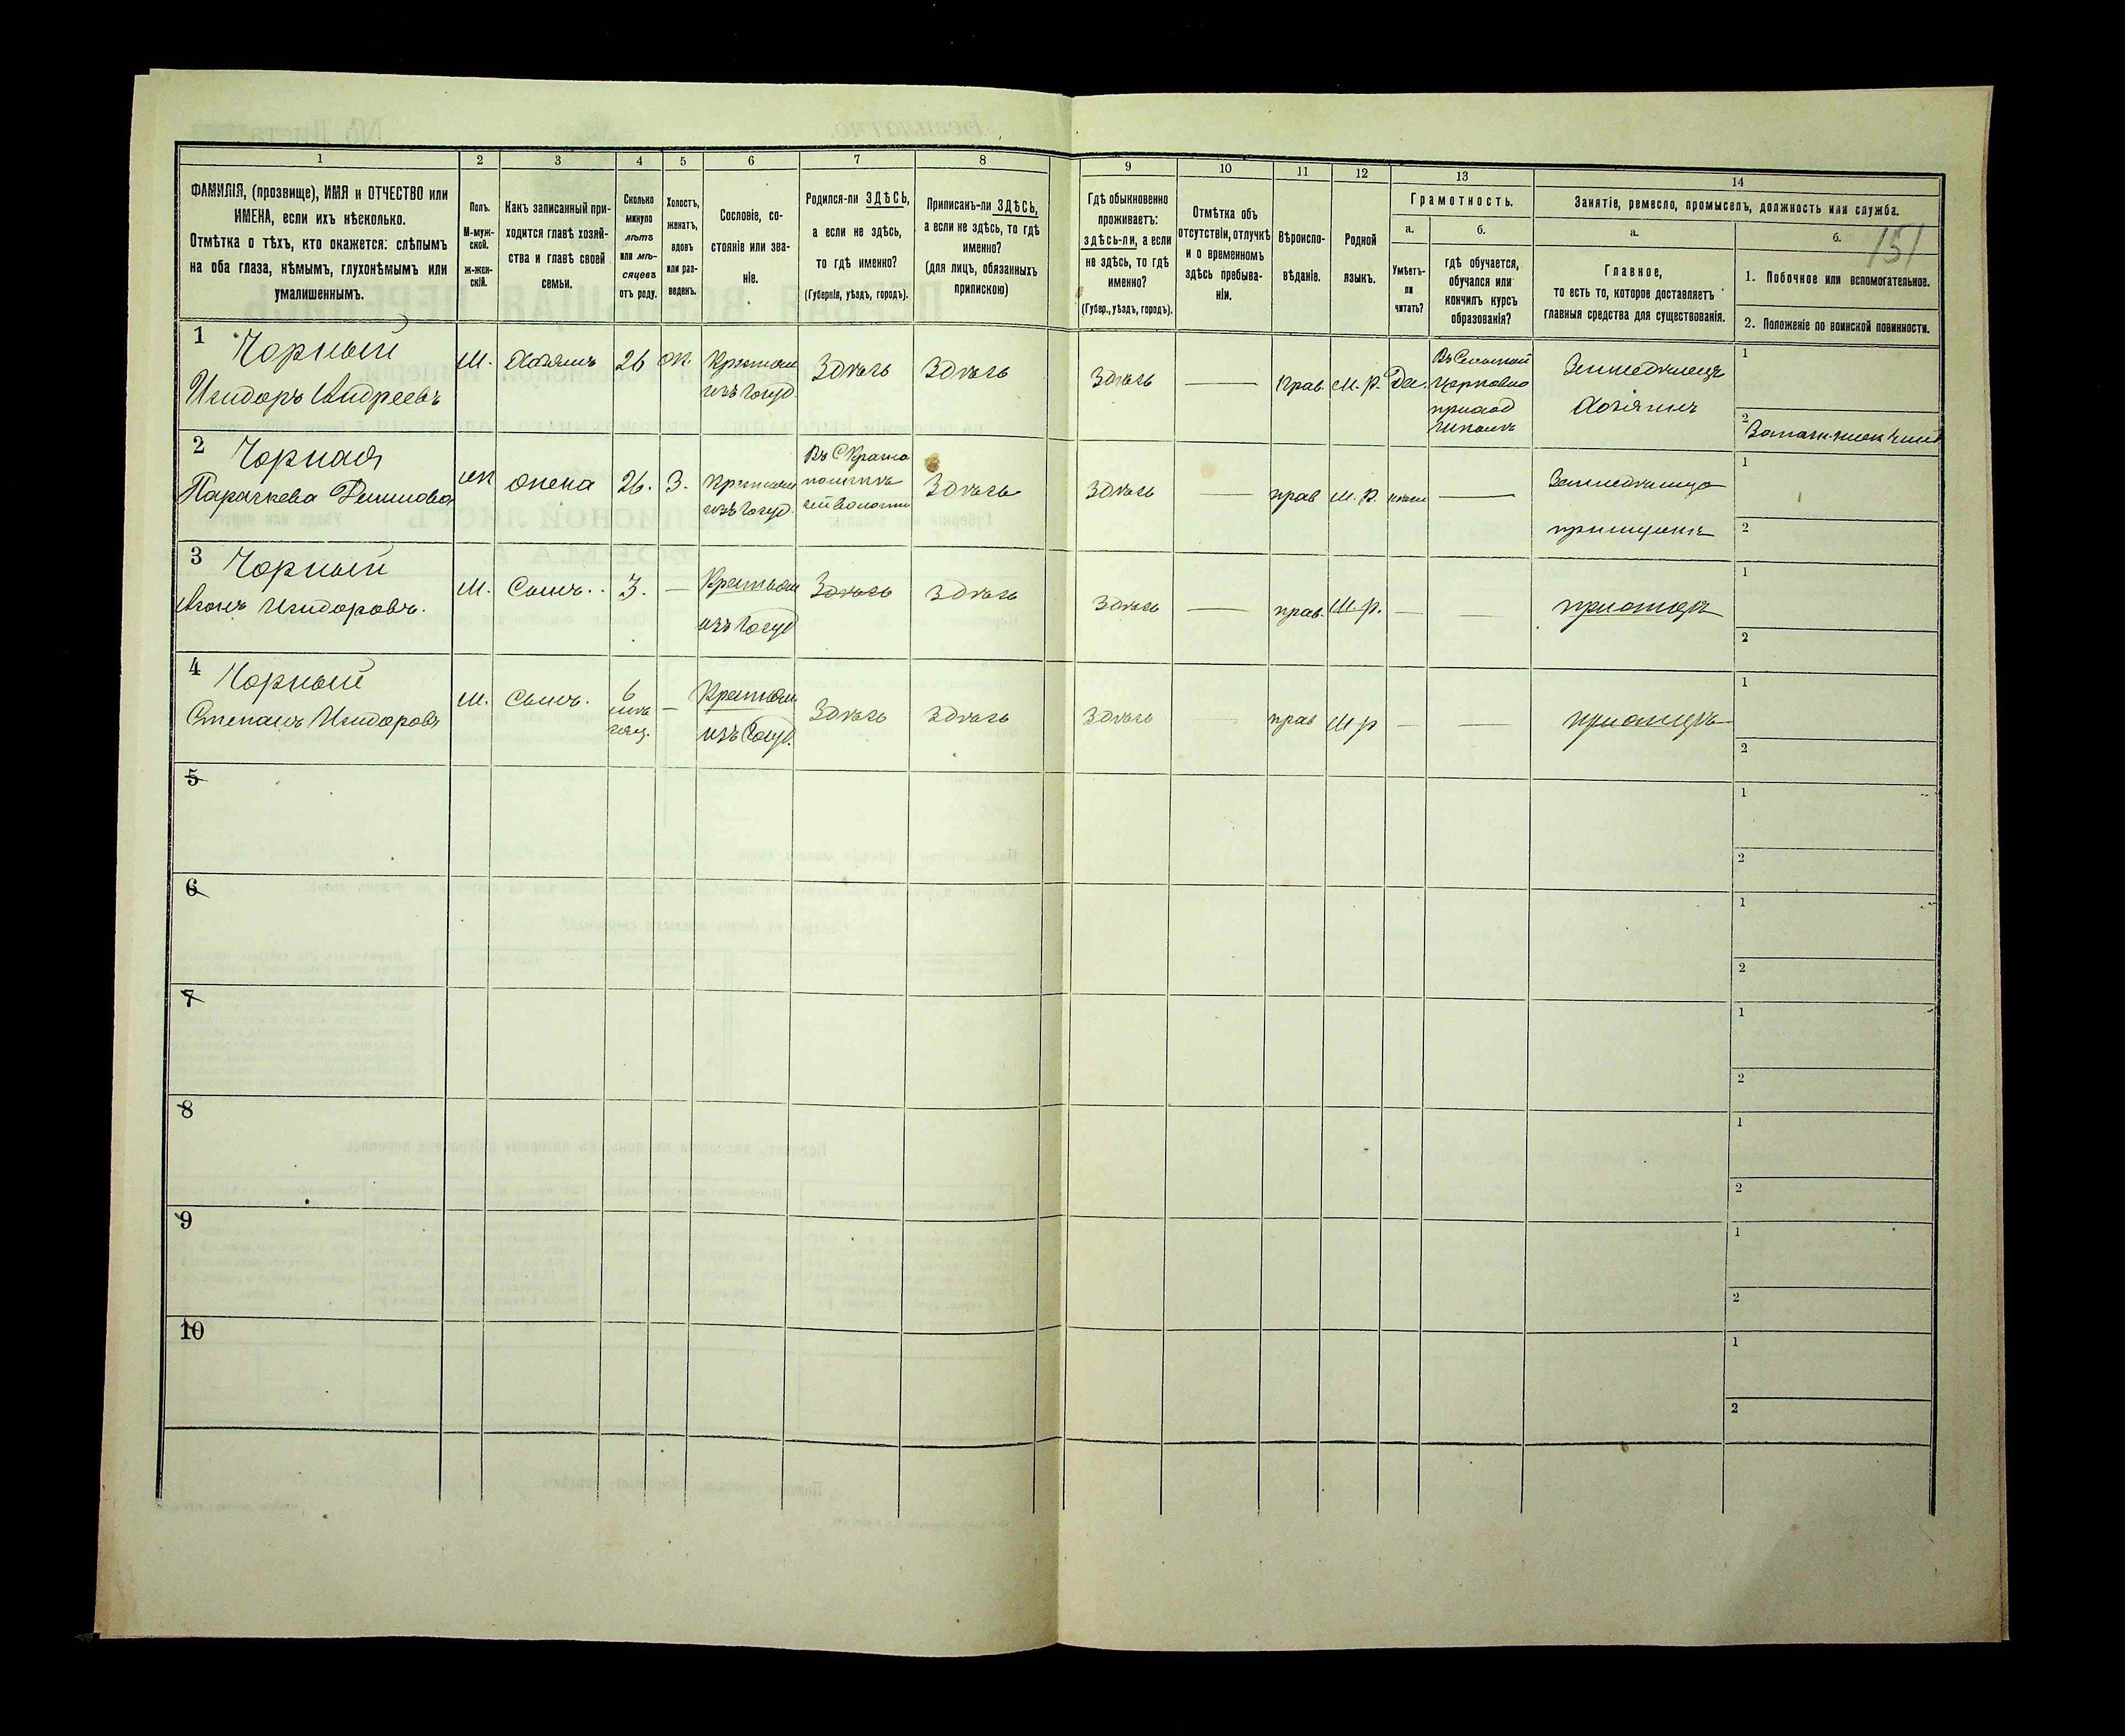 151
1 2 3 4 5 6 7 8 9 10 11 12 13 14
ФАМИЛІЯ, (прозвище), ИМЯ и ОТЧЕСТВО или
ИМЕНА, если ихъ нѣсколько.
Отмѣтка о тѣхъ, кто окажется: слѣпымъ
на оба глаза, нѣмымъ, глухонѣмымъ или
умалишеннымъ.
Полъ.
М-муж-
ской.
Ж-жен-
скій.
Какъ записанный при-
ходится главѣ хозяй-
ства и главѣ своей
семьи.
Сколько
минуло
лѣтъ
или мѣ-
сяцевъ
отъ роду.
Холостъ,
женатъ,
вдовъ
или раз-
веденъ.
Сословіе, со-
стояніе или зва-
ніе.
Родился-ли ЗДѢСЬ,
а если не здѣсь,
то гдѣ именно?
(Губернія, уѣздъ, городъ).
Приписанъ-ли ЗДѢСЬ,
а если не здѣсь, то гдѣ
именно?
(для лицъ, обязанныхъ
припискою)
Гдѣ обыкновенно
проживаетъ:
здѣсь-ли, а если
не здѣсь, то гдѣ
именно?
(Губер., уѣздъ, городъ).
Отмѣтка объ
отсутствіи, отлучкѣ
и о временномъ
здѣсь пребыва-
ніи.
Вѣроиспо-
вѣданіе.
Родной
языкъ.
Грамотность.
а.
Умѣетъ-
ли
читать?
б.
гдѣ обучается,
обучался или
кончилъ курсъ
образованія?
Занятіе, ремесло, промыселъ, должность или служба.
а.
Главное,
то есть то, которое доставляетъ
главныя средства для существованія.
б.
1. Побочное или вспомогательное.
2. Положеніе по воинской повинности.
1 Чорный
Исидоръ Андреевъ
М.
Хозяинъ
26
ж.
Крестьян
изъ госуд.
Здѣсь
Здѣсь
Здѣсь
—
прав.
М. р.
Да.
Въ Сельской
церковно
приход
школѣ
Земледѣлецъ
Хозяинъ
1
2
2 Чорная
Параскева
ж
жена
26.
З.
Крестьян
изъ госуд.
Здѣсь
Здѣсь
—
прав
М. р.
—
1
2
3 Чорный
Исидоровъ.
М.
Сынъ.
3.
—
Крестьян
изъ госуд
Здѣсь
Здѣсь
Здѣсь
—
прав.
М. р.
—
—
при отцѣ
1
2
4 Чорный
Степанъ Исидоровъ
М.
Сынъ.
6
мѣ
сяц.
—
Крестьян
изъ Госуд.
Здѣсь
Здѣсь
Здѣсь
—
прав
М р
—
—
при отцѣ
1
2
5
1
2
6
1
2
7
1
2
8
1
2
9
1
2
10
1
2